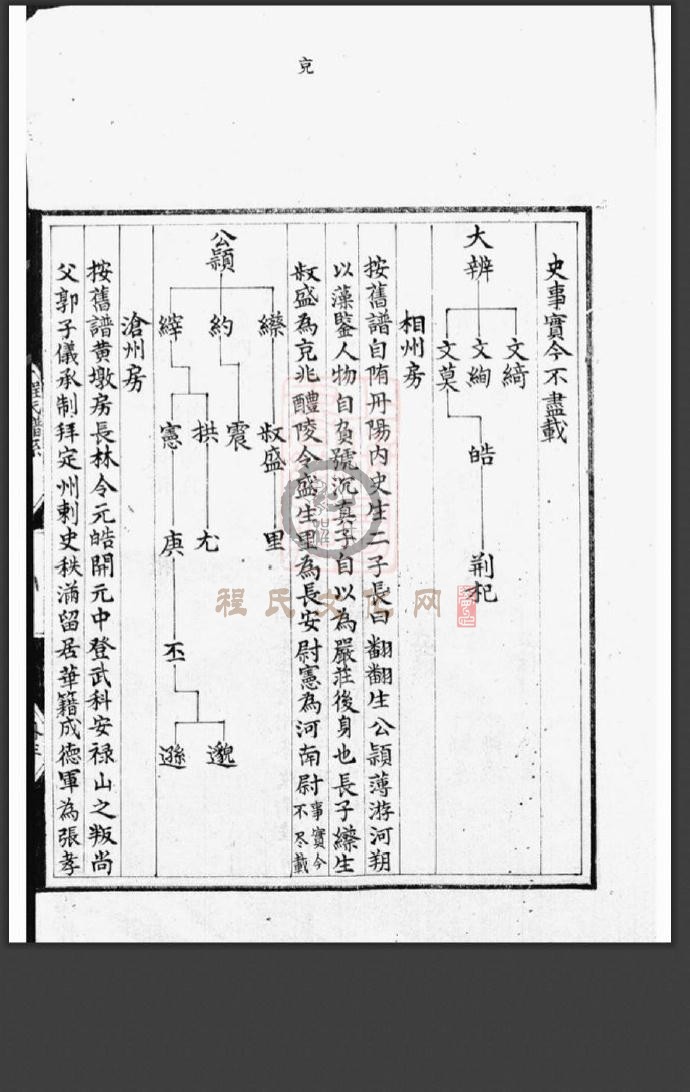 克
史事實今不盡載
大辨
文綺
文絢
文莫
皓
荆杞
相州房
按舊譜自隋丹陽內史生二子長曰翻翻生公頴薄游河朔
以藻鑒人物自負號沉真子自以為嚴莊後身也長子纅生
叔盛為京兆醴陵令盛生里為長安尉憲為河南尉事實今不尽載
公顥
纅
約
繂
叔盛
震
拱
憲
里
尤
庚
丕
邈
遜
滄州房
按舊譜黄墩房長林令元皓開元中登武科安禄山之叛尚
父郭子儀承制拜定州刺史秩滿留居華籍成德軍為張孝
程氏文化网